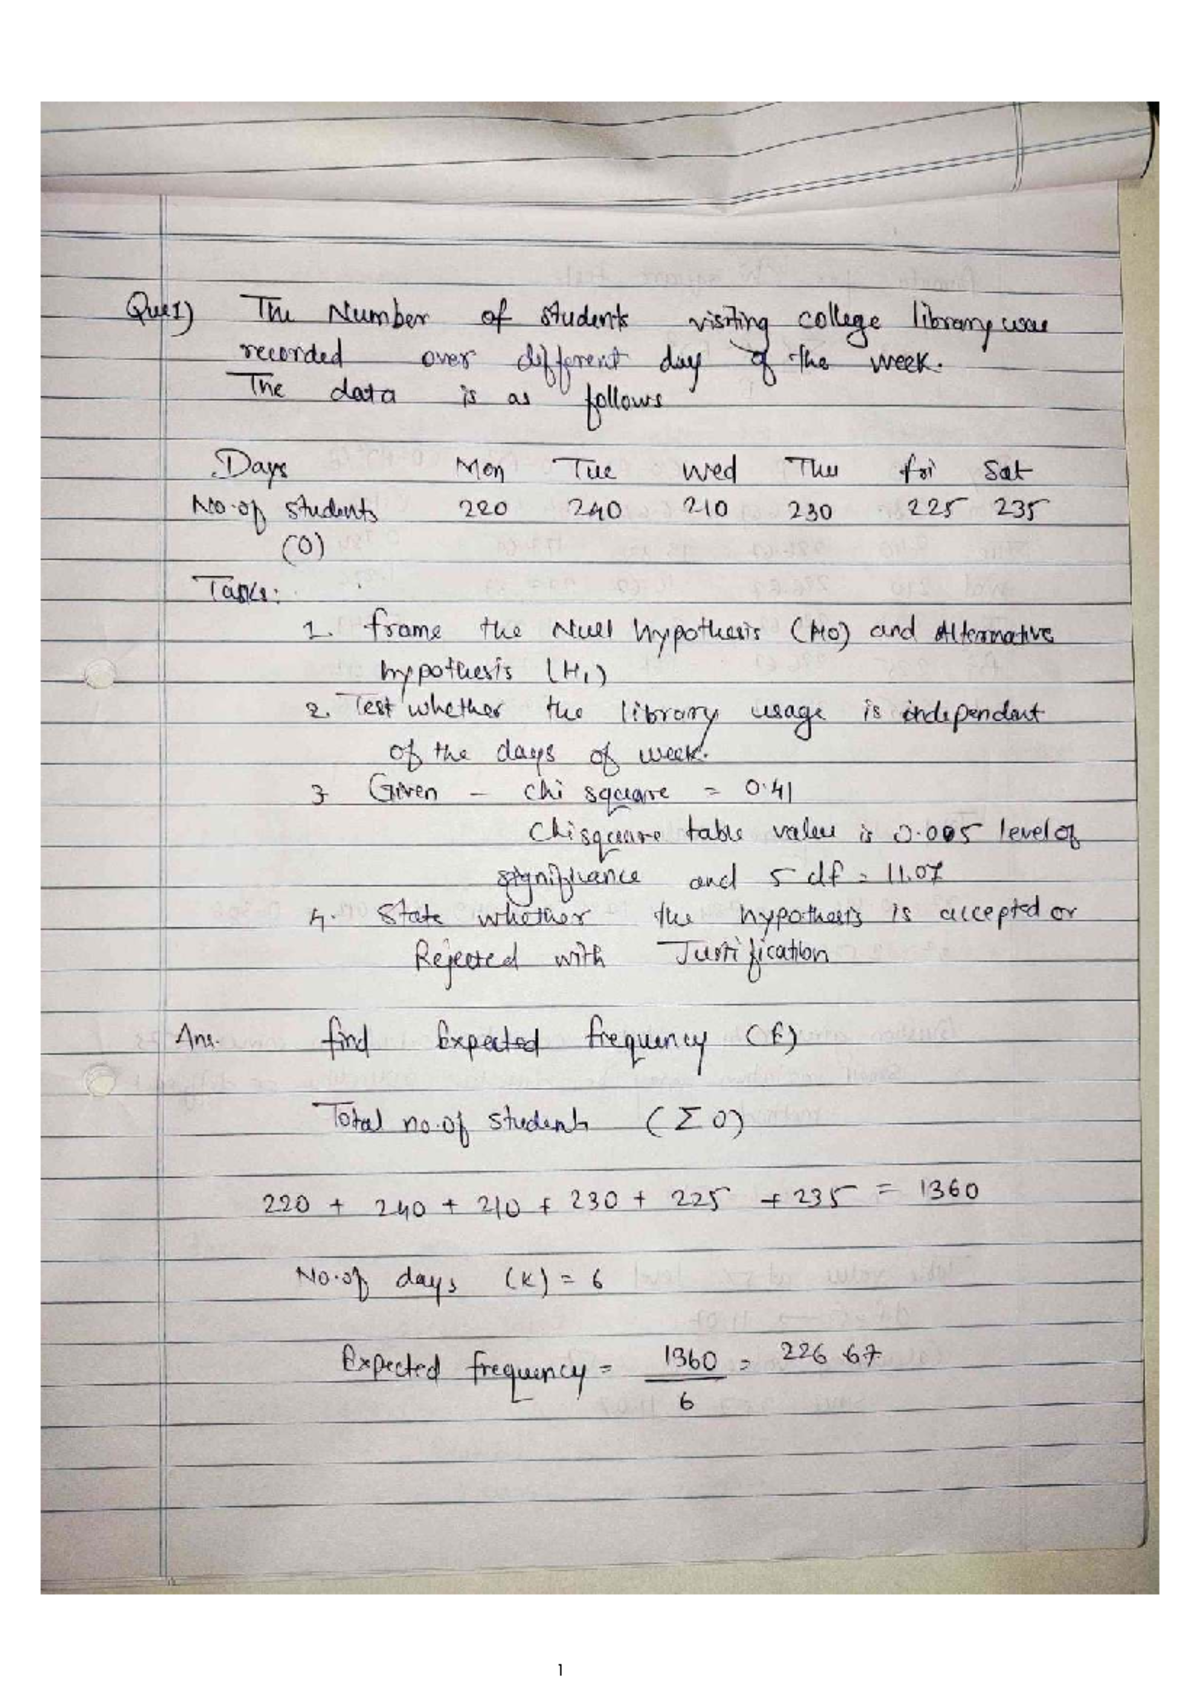 Que1) The Number of students visiting college library were
recorded over different day of the week.
The data is as follows
Days Mon Tue Wed Thu fri Sat
No.of students 220 240 210 230 225 235
(O)
Tasks:
1. frame the Null hypothesis (H0) and Alternative
hypothesis (H1)
2. Test whether the library usage is independent
of the days of week.
3 Given - chi square = 0.41
Chisquare table value is 0.005 level of
significance and 5 df = 11.07
4. State whether the hypothesis is accepted or
Rejected with Justification
Ans. find Expected frequency (E)
Total no.of students (Σ O)
220 + 240 + 210 + 230 + 225 + 235 = 1360
No.of days (K) = 6
Expected frequency = 1360 = 226 67
6
1